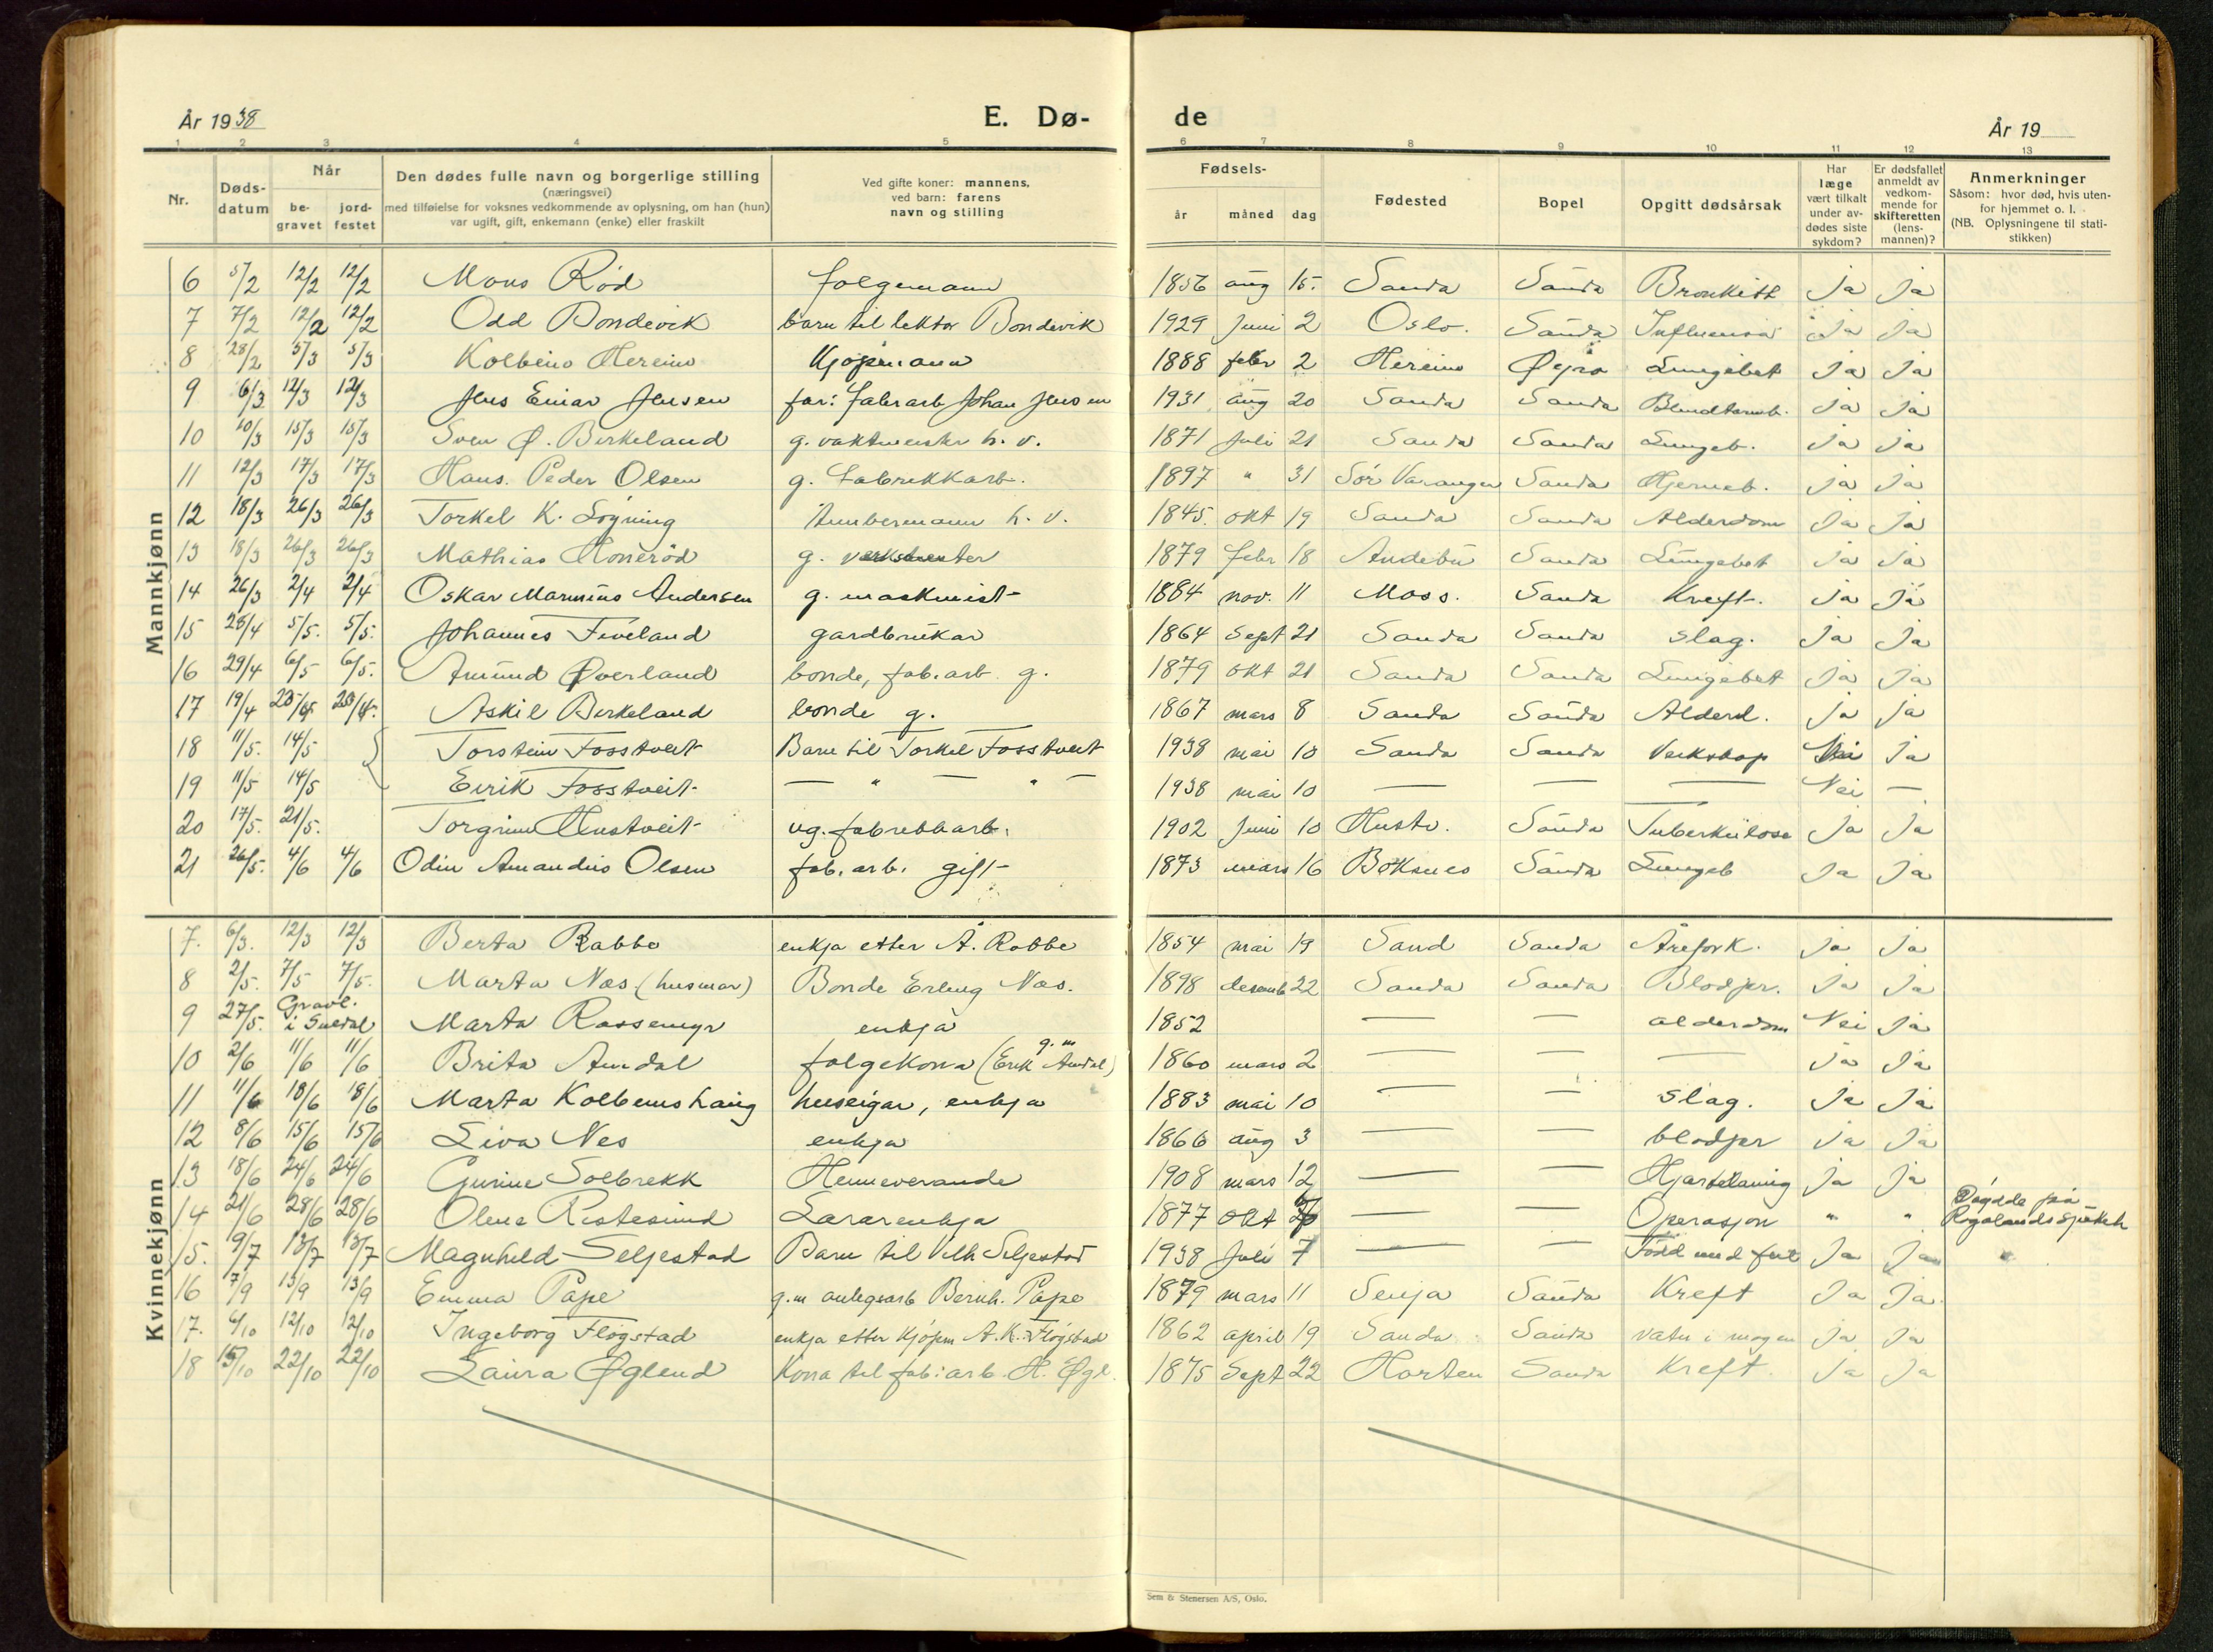 År 1938 E. Dø- de År 19
1 2 3 4 5 6 7 8 9 10 11 12 13
Nr. Døds-datum Når be-gravet jord-festet Den dødes fulle navn og borgerlige stilling (næringsvei) med tilføielse for voksnes vedkommende av oplysning, om han (hun) var ugift, gift, enkemann (enke) eller fraskilt Ved gifte koner: mannens, ved barn: farens navn og stilling Fødsels- år måned dag Fødested Bopel Opgitt dødsårsak Har læge vært tilkalt under av-dødes siste sykdom? Er dødsfallet anmeldt av vedkom-mende for skifteretten (lens-mannen)? Anmerkninger Såsom: hvor død, hvis uten-for hjemmet o. l. (NB. Oplysningene til stati-stikken)
Mannkjønn
6 5/2 12/2 12/2 Mons Rød folgemann 1856 aug 15. Sauda Sauda Bronkitt Ja Ja
7 7/2 12/2 12/2 Odd Bondevik barn til lektor Bondevik 1929 Juni 2 Oslo. Sauda Influensa Ja Ja
8 28/2 5/3 5/3 Kolbeins Hereins Kjøpmann 1888 febr 2 Hereins Lungebet Ja Ja
9 6/3 12/3 12/3 Jens Einar Jensen far: fabrarb Johan Jensen 1931 aug 20 Sauda Sauda Blindtarmb. Ja Ja
10 10/3 15/3 15/3 Sven Ø. Birkeland g. vaktmeister h. v. 1871 Juli 21 Sauda Sauda Lungeb. Ja Ja
11 12/3 17/3 17/3 Hans. Peder Olsen g. Fabrikkarb. 1897 " 31 Sør Varanger Sauda Hjerneb. Ja Ja
12 18/3 26/3 26/3 Torkel K. Løgning h. v. 1845. okt 19 Sauda Sauda Alderdom Ja Ja
13 18/3 26/3 26/3 Mathias Honerød g. 1879 febr 18 Andebu Sauda Lungebet Ja Ja
14 26/3 2/4 2/4 Oskar Marinius Andersen g. maskinist 1884 nov. 11 Moss. Sauda Kreft. Ja Ja
15 28/4 5/5. 5/5. Johannes Fiveland gardbrukar 1864 Sept 21 Sauda Sauda slag. Ja Ja
16 29/4 6/5 6/5. Amund Øverland bonde, fab. arb. g. 1879 okt 21 Sauda Sauda Lungebet Ja Ja
17 19/4 Askil Birkeland bonde g. 1867 mars 8 Sauda Sauda Alderd. Ja Ja
18 11/5. 14/5 Torstein Fosstveit Barn til Torkel Fosstveit 1938 mai 10 Sauda Sauda Veikskap Nei Ja
19 11/5 14/5 Eirik Fosstveit — " — " — 1938 mai 10 — — — Nei —
20 17/5. 21/5. Torgrim Hustveit ug. fabrikkarb. 1902 Juni 10 Hustv. Sauda Tuberkulose Ja Ja
21 26/5. 4/6 4/6 Odin Amandus Olsen fab. arb. gift 1873 mars 16 Sauda Lungeb Ja Ja
Kvinnekjønn
7. 6/3. 12/3 12/3 Berta Rabbe enkja etter Å. Rabbe 1854 mai 19 Sand Sauda Årefork. Ja Ja
8 2/5. 7/5 7/5. Marta Nas (husmor) Bonde Erling Nas. 1898 desemb 22 Sauda Sauda Blodpr. Ja Ja
9 27/5. Gravl. i Suldal Marta Rossemyr enkja 1852 — — alderdom Nei Ja
10 2/6 11/6 11/6 Brita Amdal folgekona (g. m Erik Amdal) 1860 mars 2 — — — Ja Ja
11 11/6 18/6 18/6 Marta Kolbeinshaug huseigar, enkja 1883 mai 10 — — slag. Ja Ja
12 8/6 15/6 15/6 Liva Nes enkja 1866 aug 3 — — blodpr Ja Ja
13 18/6 24/6 24/6 Gurine Solbrekk Heimeverande 1908 mars 12 — — Hjartelaming Ja Ja
14 21/6 28/6 28/6 Olene Ristesund Lærarenkja 1877 okt — — Operasjon " " Døydde på Rogalands sjukeh
15. 9/7 13/7 13/7 Magnhild Seljestad Barn til Vilh Seljestad 1938 Juli 7 — — Født med feil Ja Ja
16 7/9 13/9 13/9 Emma Pape g. m anlegsarb Bernh. Pape 1879 mars 11 Senja Sauda Kreft Ja Ja.
17. 6/10 12/10 12/10 Ingeborg Fløgstad enkja etter kjøpm A. K. Fløgstad 1862 april 19 Sauda Sauda vatn i magen Ja Ja
18 15/10 22/10 22/10 Laura Øglend Kona til fab: arb. H. Øgl. 1875 Sept 22 Horten Sauda Kreft. Ja Ja
Sem & Stenersen A/S, Oslo.